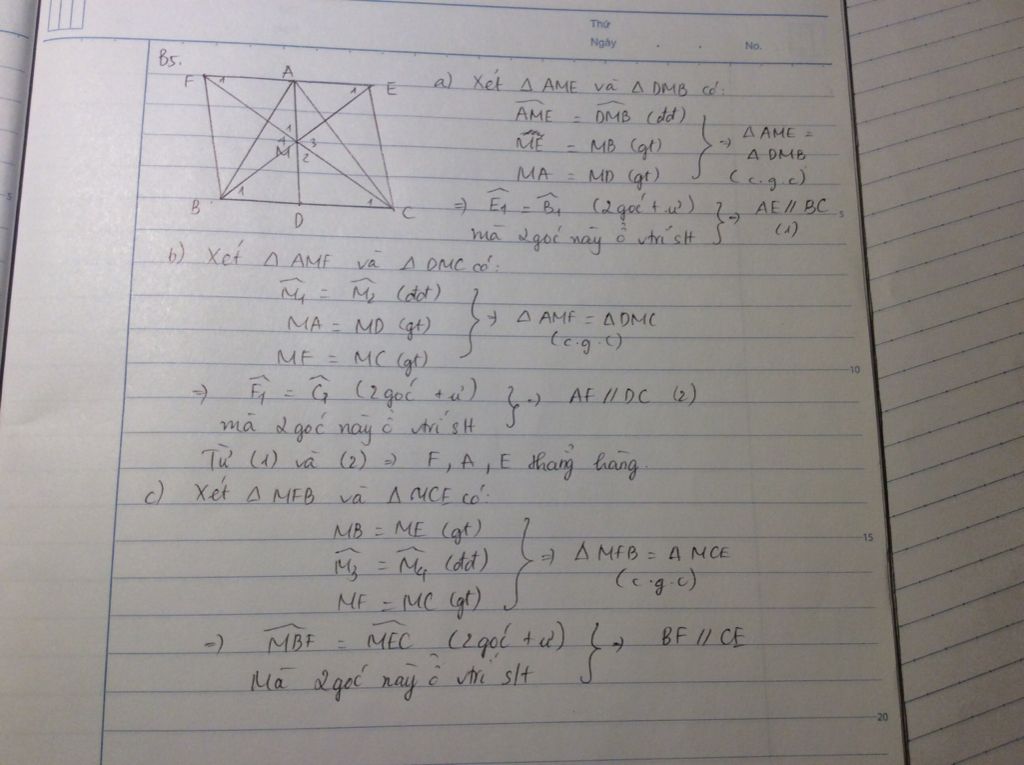 Thứ
Ngày . . No.
B5.
F 1 A 1 E
M 1 4 3 2
B 1 D 1 C
a) Xét Δ AME và Δ DMB có:
AME = DMB (đđ)
ME = MB (gt)
MA = MD (gt)
} => Δ AME = Δ DMB (c.g.c)
=> E1 = B1 (2 góc t.ư)
mà 2 góc này ở vtrí slt
} => AE // BC (1)
b) Xét Δ AMF và Δ DMC có:
M1 = M2 (đđ)
MA = MD (gt)
MF = MC (gt)
} => Δ AMF = Δ DMC (c.g.c)
=> F1 = C1 (2 góc t.ư)
mà 2 góc này ở vtrí slt
} => AF // DC (2)
Từ (1) và (2) => F, A, E thẳng hàng.
c) Xét Δ MFB và Δ MCE có:
MB = ME (gt)
M3 = M4 (đđ)
MF = MC (gt)
} => Δ MFB = Δ MCE (c.g.c)
=> MBF = MEC (2 góc t.ư)
Mà 2 góc này ở vtrí slt
} => BF // CE
5
10
15
20